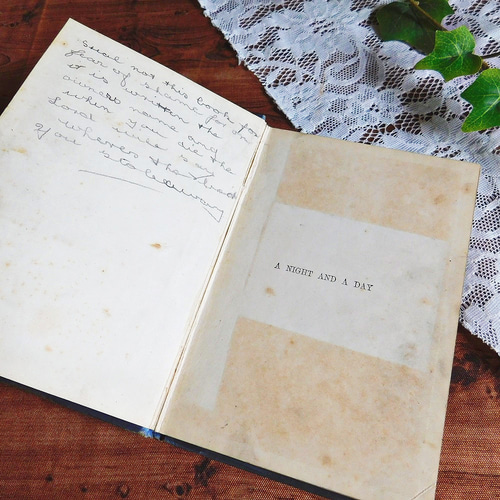 Steal not this book for
fear of shame for in
it is written the
owners name and
when you die the
Lord will say
wherers the book
you stole away
A NIGHT AND A DAY